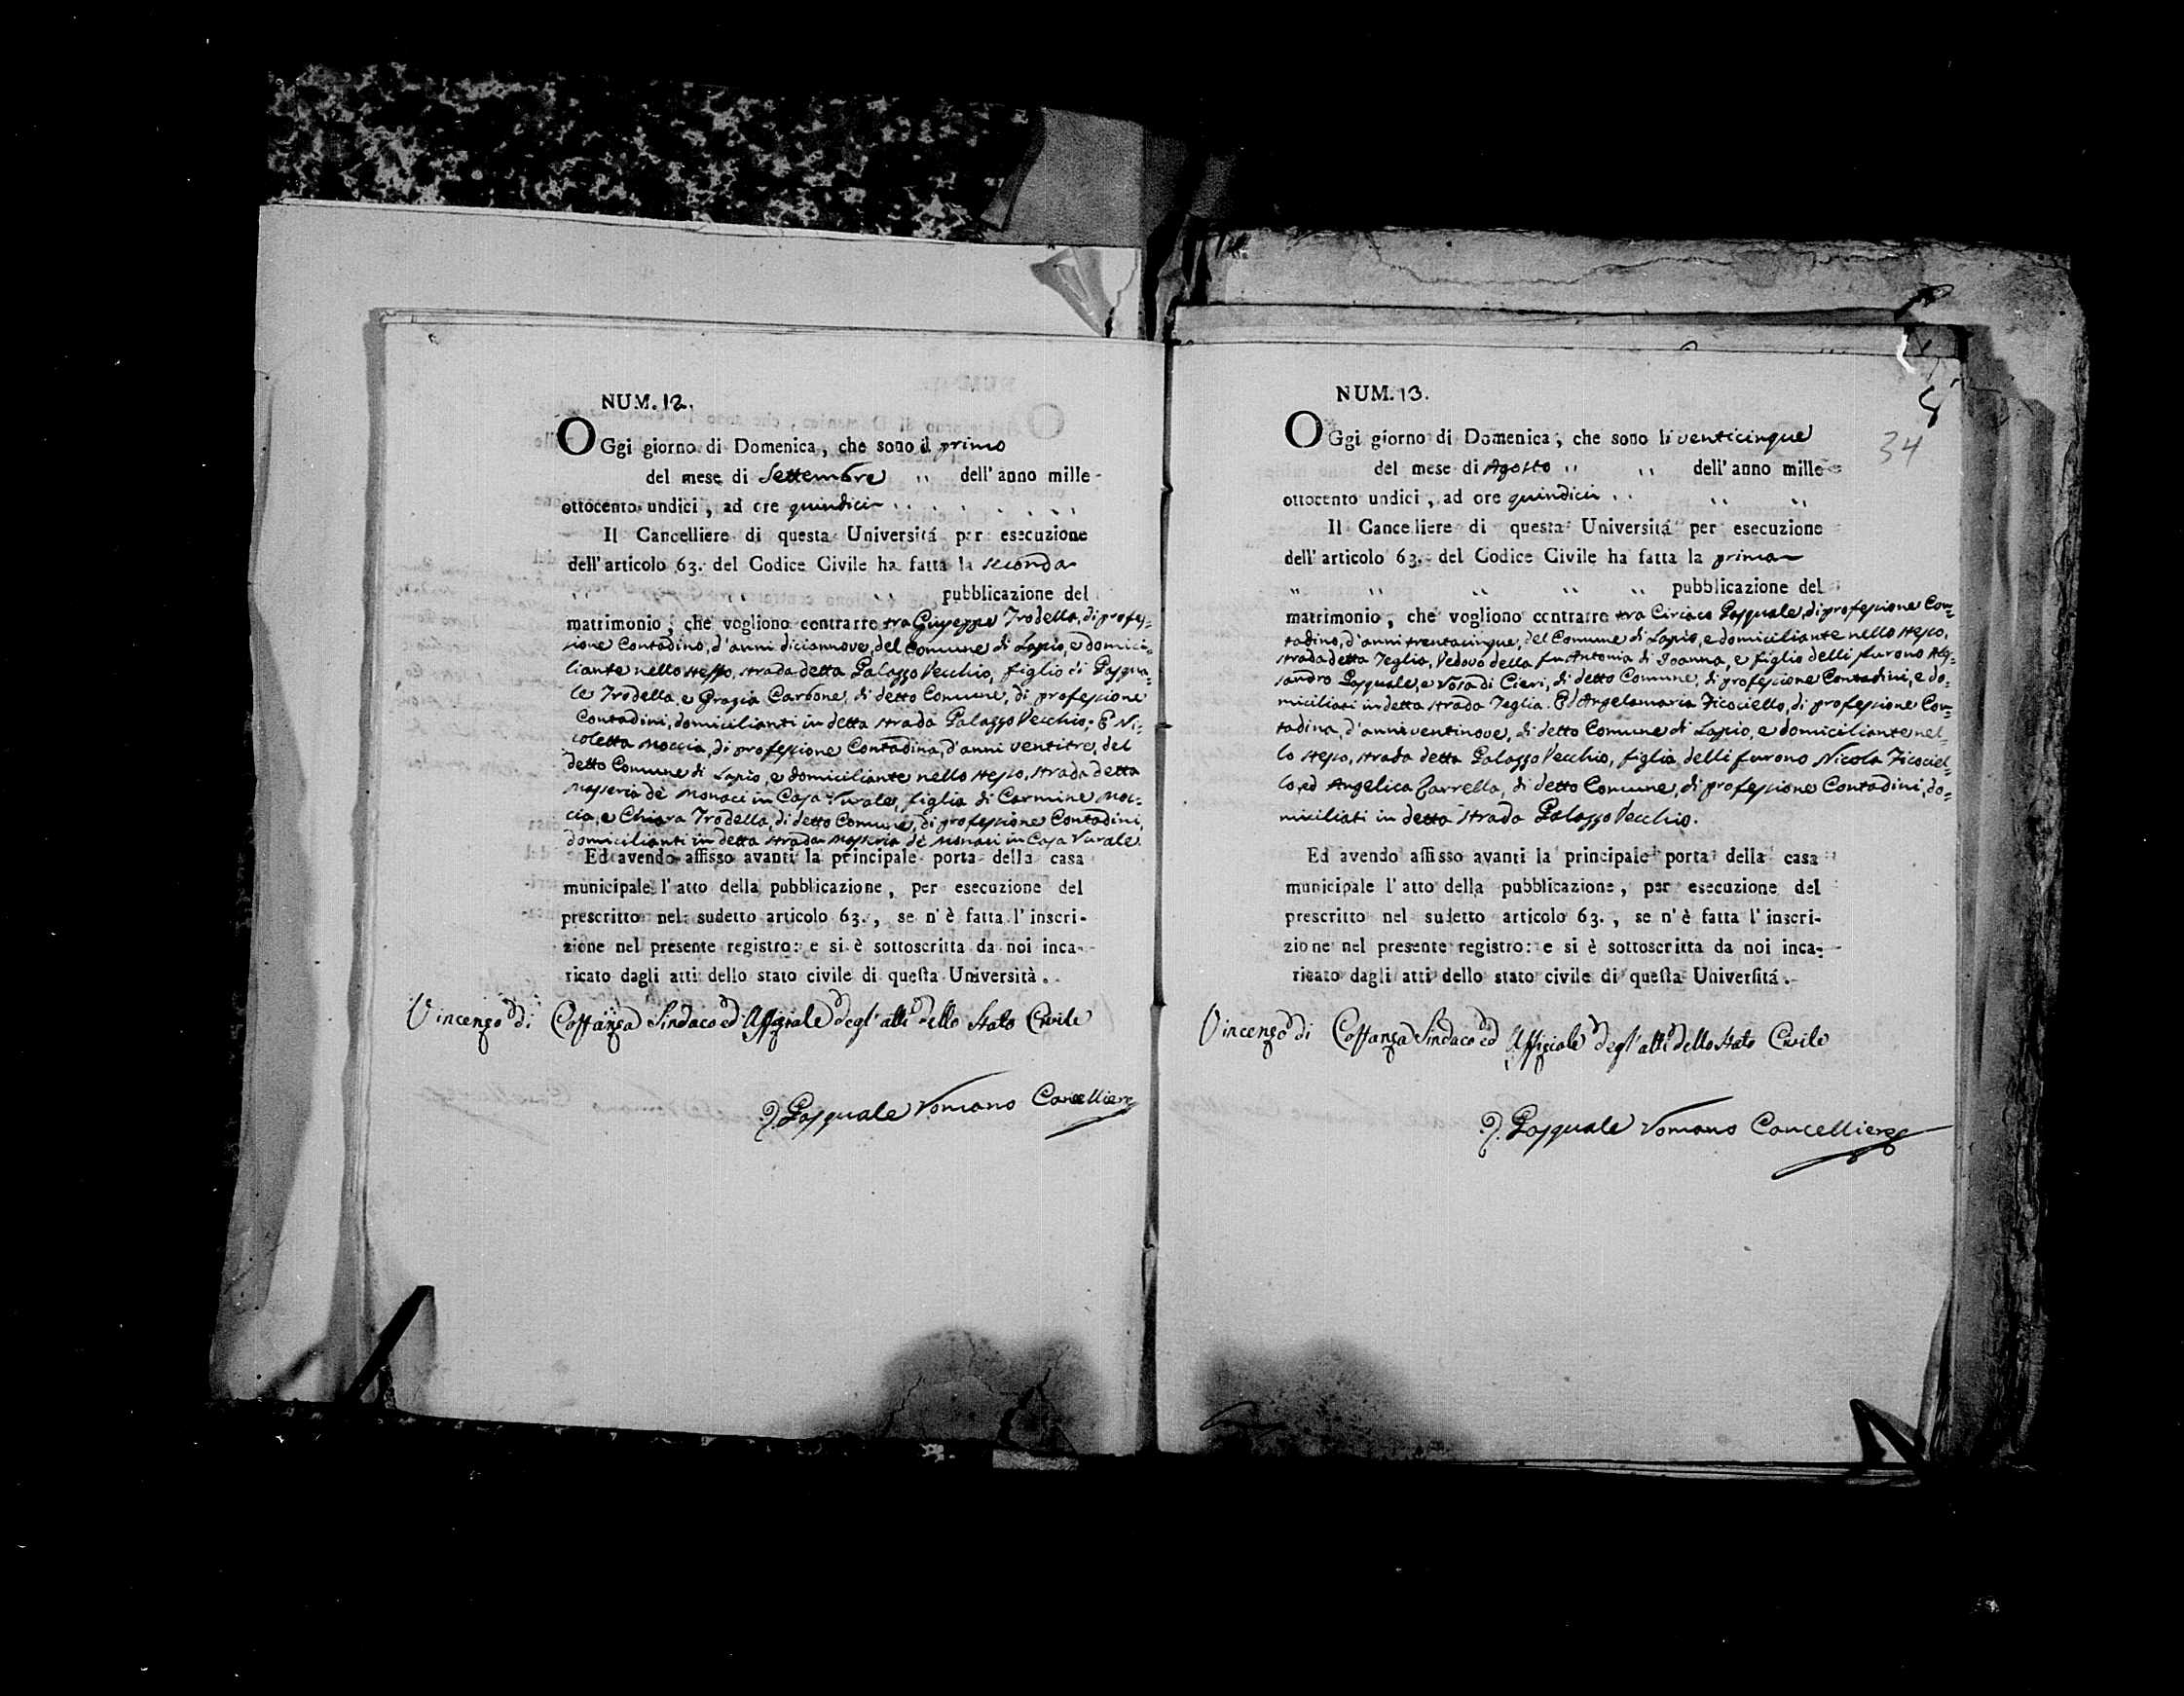 NUM. 12.
OGgi giorno di Domenica, che sono il primo
del mese di Settembre " dell' anno mille-
ottocento undici, ad ore quindici
Il Cancelliere di questa Universitá per esecuzione
dell' articolo 63. del Codice Civile ha fatta la seconda
" " " pubblicazione del
matrimonio, che vogliono contrarre tra Giuseppe Trodella, di profes=
sione Contadino, d'anni diciannove, del Comune di Lapio, e domici=
liante nello stesso, strada detta Palazzo Vecchio, figlio di Pasqua=
le Trodella, e Grazia Carbone, di detto Comune, di professione
Contadini, domicilianti in detta strada Palazzo Vecchio; E Ni=
coletta Moccia, di professione Contadina, d'anni ventitre, del
detto Comune di Lapio, e domiciliante nello stesso, strada detta
Masseria de Monaci in Casa Rurale, figlia di Carmine Moc=
cia, e Chiara Trodella, di detto Comune, di professione Contadini,
domicilianti in detta strada Masseria de Monaci in Casa Rurale.
Ed avendo affisso avanti la principale porta della casa
municipale l' atto della pubblicazione, per esecuzione del
prescritto nel sudetto articolo 63., se n' è fatta l' inscri-
zione nel presente registro: e si è sottoscritta da noi inca-
ricato dagli atti dello stato civile di questa Università.
Vincenzo di Costanza Sindaco ed Uffiziale degl' atti dello Stato Civile
D. Pasquale Romano Cancelliere
NUM. 13.
34
OGgi giorno di Domenica, che sono li venticinque
del mese di Agosto " " dell' anno mille
ottocento undici, ad ore quindici " "
Il Cancelliere di questa Universitá per esecuzione
dell' articolo 63. del Codice Civile ha fatta la prima
" " " " " pubblicazione del
matrimonio, che vogliono contrarre tra Ciriaco Pasquale, di professione Con=
tadino, d'anni trentacinque, del Comune di Lapio, e domiciliante nello stesso,
strada detta Teglia, Vedovo della fu Antonia di Joanna, e figlio delli furono Ales=
sandro Pasquale, e Rosa di Cieri, di detto Comune, di professione Contadini, e do=
miciliati in detta strada Teglia. Ed Angelamaria Ficociello, di professione Con=
tadina, d'anni ventinove, di detto Comune di Lapio, e domiciliante nel=
lo stesso, strada detta Palazzo Vecchio, figlia delli furono Nicola Ficociel=
lo, ed Angelica Zarrella, di detto Comune, di professione Contadini, do=
miciliati in detta strada Palazzo Vecchio.
Ed avendo affisso avanti la principale porta della casa
municipale l' atto della pubblicazione, per esecuzione del
prescritto nel sudetto articolo 63., se n' è fatta l' inscri-
zione nel presente registro: e si è sottoscritta da noi inca-
ricato dagli atti dello stato civile di questa Universitá.
Vincenzo di Costanza Sindaco ed Uffiziale degl' atti dello Stato Civile
D. Pasquale Romano Cancelliere